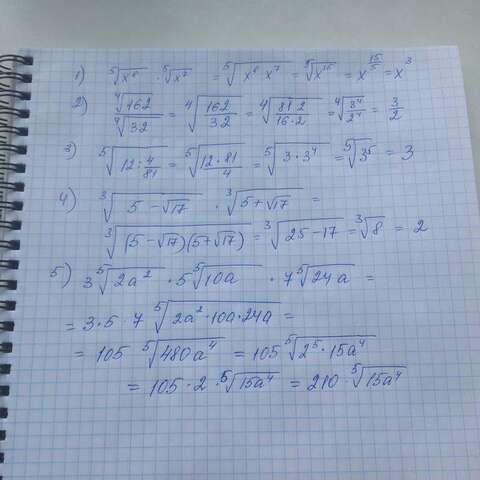 1) ⁵√x⁸ · ⁵√x⁷ = ⁵√(x⁸ x⁷) = ⁵√x¹⁵ = x^(15/5) = x³
2) ⁴√162 / ⁴√32 = ⁴√(162/32) = ⁴√(81·2 / 16·2) = ⁴√(3⁴/2⁴) = 3/2
3) ⁵√(12 : 4/81) = ⁵√(12·81 / 4) = ⁵√(3·3⁴) = ⁵√3⁵ = 3
4) ³√(5 − √17) · ³√(5 + √17) =
³√((5 − √17)(5 + √17)) = ³√(25 − 17) = ³√8 = 2
5) 3 ⁵√(2a²) · 5 ⁵√(10a) · 7 ⁵√(24a) =
= 3·5·7 ⁵√(2a²·10a·24a) =
= 105 ⁵√(480a⁴) = 105 ⁵√(2⁵·15a⁴)
= 105·2·⁵√(15a⁴) = 210·⁵√(15a⁴)